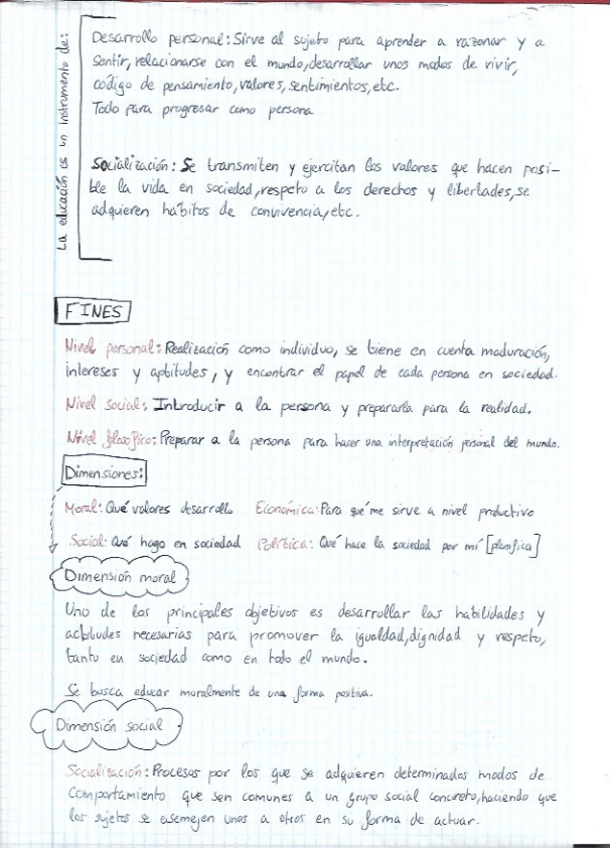 La educación es un instrumento de:
Desarrollo personal: Sirve al sujeto para aprender a razonar y a
sentir, relacionarse con el mundo, desarrollar unos modos de vivir,
código de pensamiento, valores, sentimientos, etc.
Todo para progresar como persona
Socialización: Se transmiten y ejercitan los valores que hacen posi-
ble la vida en sociedad, respeto a los derechos y libertades, se
adquieren hábitos de convivencia, etc.
FINES
Nivel personal: Realización como individuo, se tiene en cuenta maduración,
intereses y aptitudes, y encontrar el papel de cada persona en sociedad.
Nivel social: Introducir a la persona y prepararla para la realidad.
Nivel filosófico: Preparar a la persona para hacer una interpretación personal del mundo.
Dimensiones:
Moral: Qué valores desarrollo Económica: Para qué me sirve a nivel productivo
Social: Qué hago en sociedad Política: Qué hace la sociedad por mí [planifica]
Dimensión moral
Uno de los principales objetivos es desarrollar las habilidades y
actitudes necesarias para promover la igualdad, dignidad y respeto,
tanto en sociedad como en todo el mundo.
Se busca educar moralmente de una forma positiva.
Dimensión social
Socialización: Procesos por los que se adquieren determinados modos de
comportamiento que son comunes a un grupo social concreto, haciendo que
los sujetos se asemejen unos a otros en su forma de actuar.